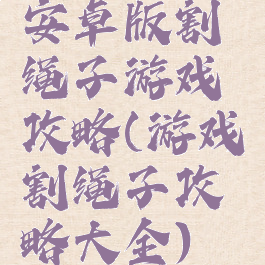 安卓版割
绳子游戏
攻略(游戏
割绳子攻
略大全)